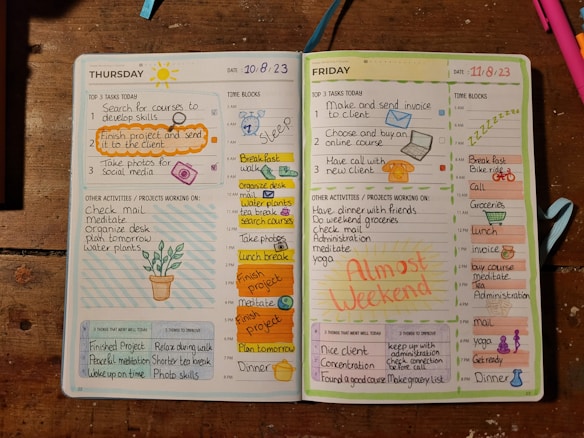 THURSDAY
DATE 10.8.23
TOP 3 TASKS TODAY
1 Search for courses to
develop skills
2 Finish project and send
it to the client
3 Take photos for
Social media
OTHER ACTIVITIES / PROJECTS WORKING ON:
Check mail
meditate
Organize desk
plan tomorrow
Water plants
3 THINGS THAT WENT WELL TODAY
Finished Project
Peaceful meditation
Woke up on time
3 THINGS TO IMPROVE
Relax during walk
Shorter tea break
Photo skills
TIME BLOCKS
Sleep
Breakfast
walk
Organize desk
mail
Water plants
tea break
search courses
Take photos
Lunch break
Finish
Project
meditate
Finish
Project
Plan tomorrow
Dinner
FRIDAY
DATE 11.8.23
TOP 3 TASKS TODAY
1 Make and send invoice
to client
2 Choose and buy an
online course
3 Have call with
new client
OTHER ACTIVITIES / PROJECTS WORKING ON:
Have dinner with friends
Do weekend groceries
check mail
Administration
meditate
yoga
Almost
Weekend
3 THINGS THAT WENT WELL TODAY
Nice client
Concentration
Found a good course
3 THINGS TO IMPROVE
keep up with
administration
check connection
before call
Make grocery list
TIME BLOCKS
zzzzzzzz
Breakfast
Bike ride
Call
Groceries
Lunch
invoice
buy course
meditate
Tea
Administration
Mail
yoga
Get ready
Dinner